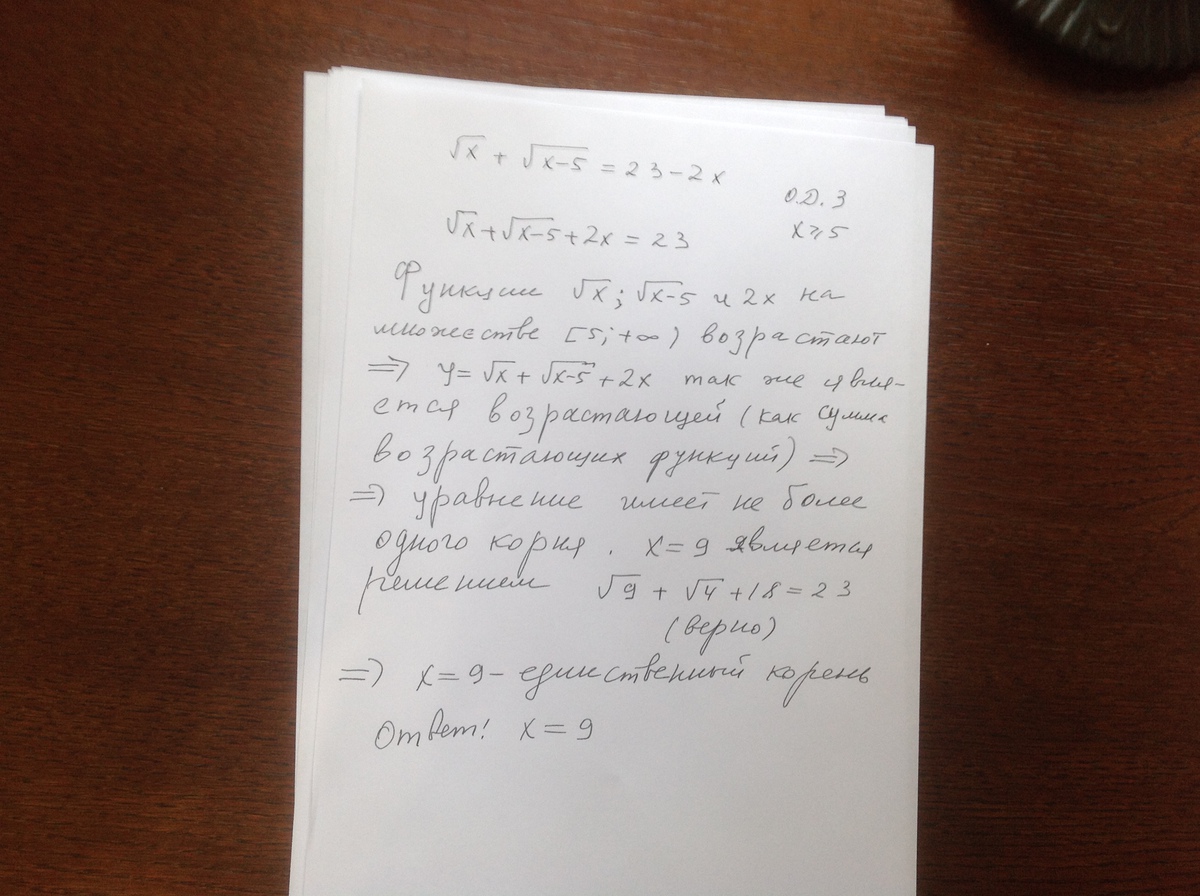 √x + √x-5 = 23 - 2x
О.Д.З
√x + √x-5 + 2x = 23
x ⩾ 5
Функции √x ; √x-5 и 2x на
множестве [5; +∞) возрастают
⇒ y = √x + √x-5 + 2x так же явля-
ется возрастающей (как сумма
возрастающих функций) ⇒
⇒ уравнение имеет не более
одного корня. x = 9 является
решением √9 + √4 + 18 = 23
(верно)
⇒ x = 9 - единственный корень
Ответ! x = 9